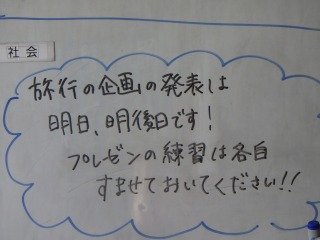 社会
旅行の企画の発表は
明日、明後日です!
プレゼンの練習は各自
すませておいてください!!